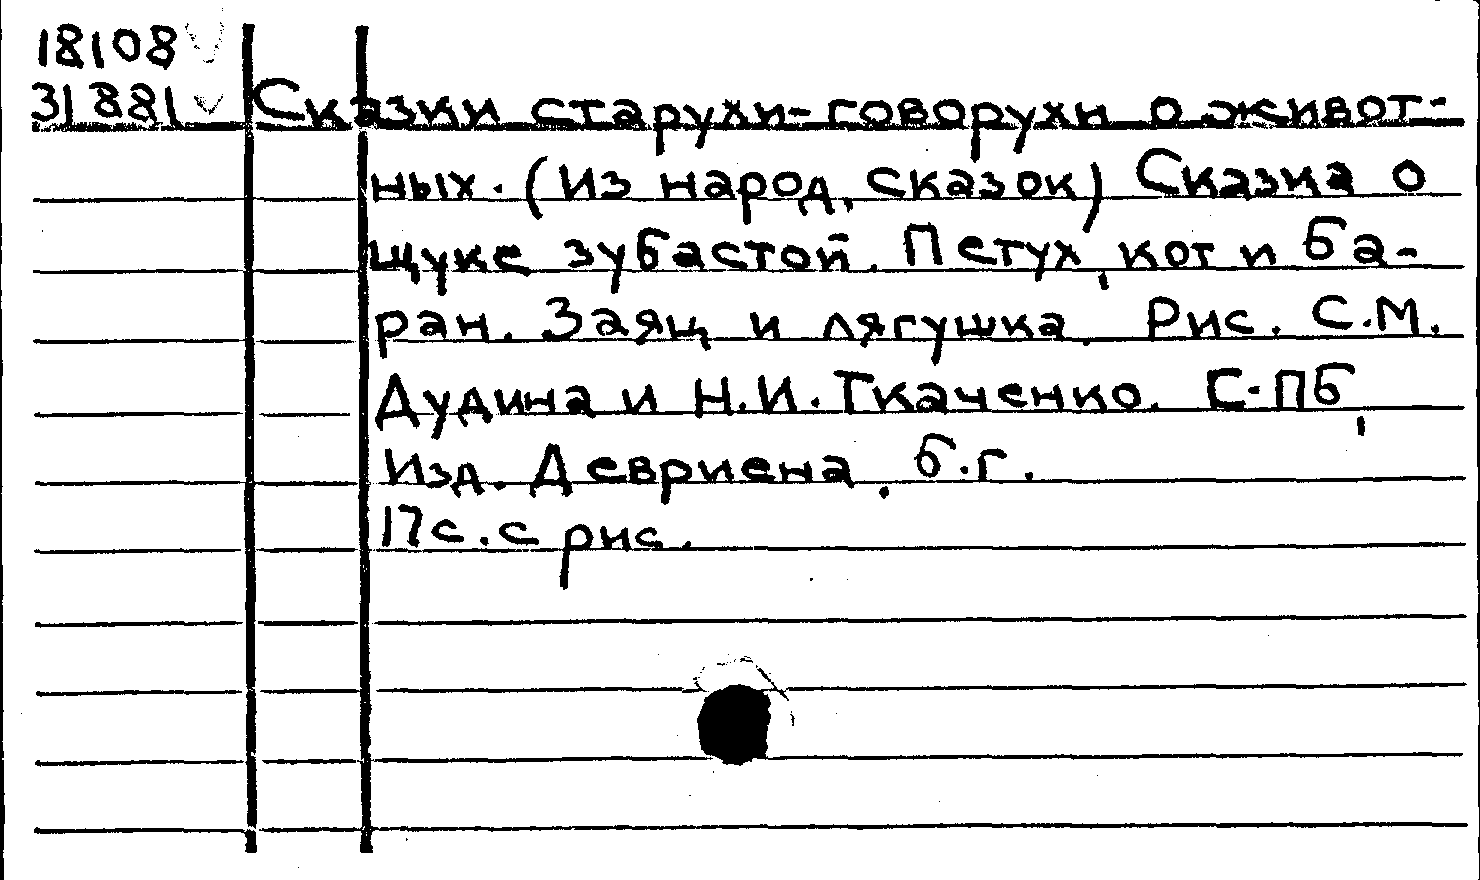 18108 ✓
31881 ✓ Сказки старухи-говорухи о живот-
ных. (Из народ. сказок) Сказка о
щуке зубастой. Петух, кот и ба-
ран. Заяц и лягушка. Рис. С.М.
Дудина и Н.И. Ткаченко. С-Пб,
Изд. Девриена, б.г.
17с. с рис.